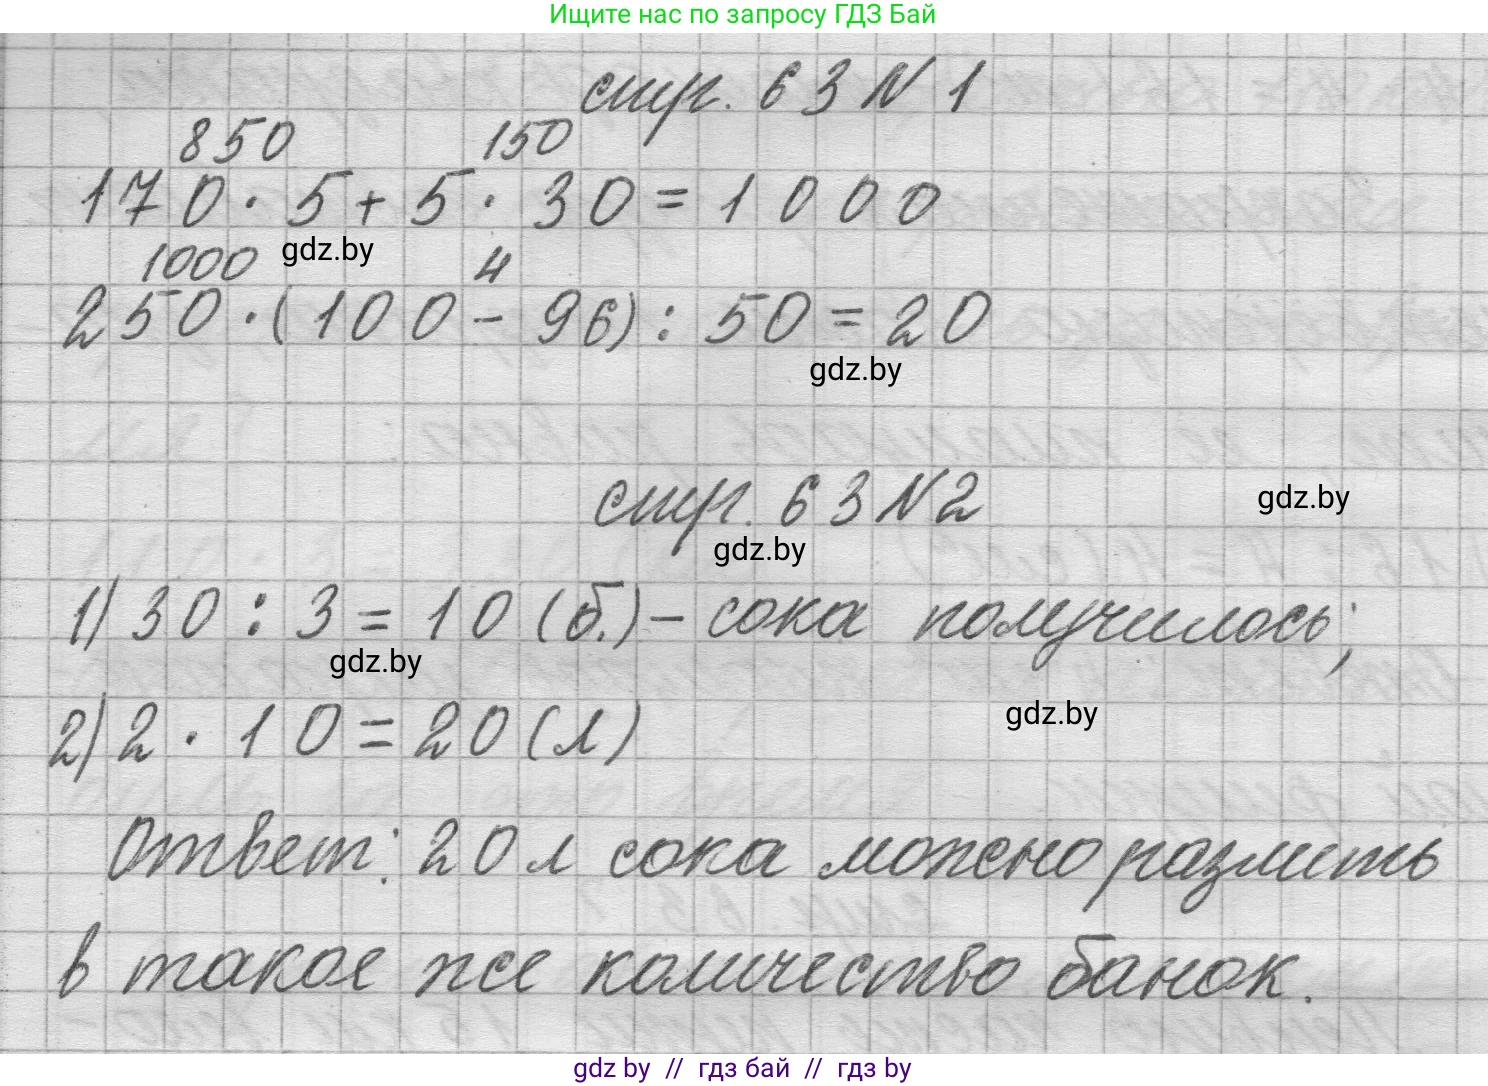 Ищите нас по запросу ГДЗ Бай
стр. 63 N 1
850 150
170 · 5 + 5 · 30 = 1000
gdz.by
1000 4
250 · (100 - 96) : 50 = 20
gdz.by
стр. 63 N 2
gdz.by
gdz.by
1) 30 : 3 = 10 (б.) – сока получилось;
gdz.by
2) 2 · 10 = 20 (л)
gdz.by
Ответ: 20 л сока можно разлить
в такое же количество банок.
gdz by // гдз бай // гдз by